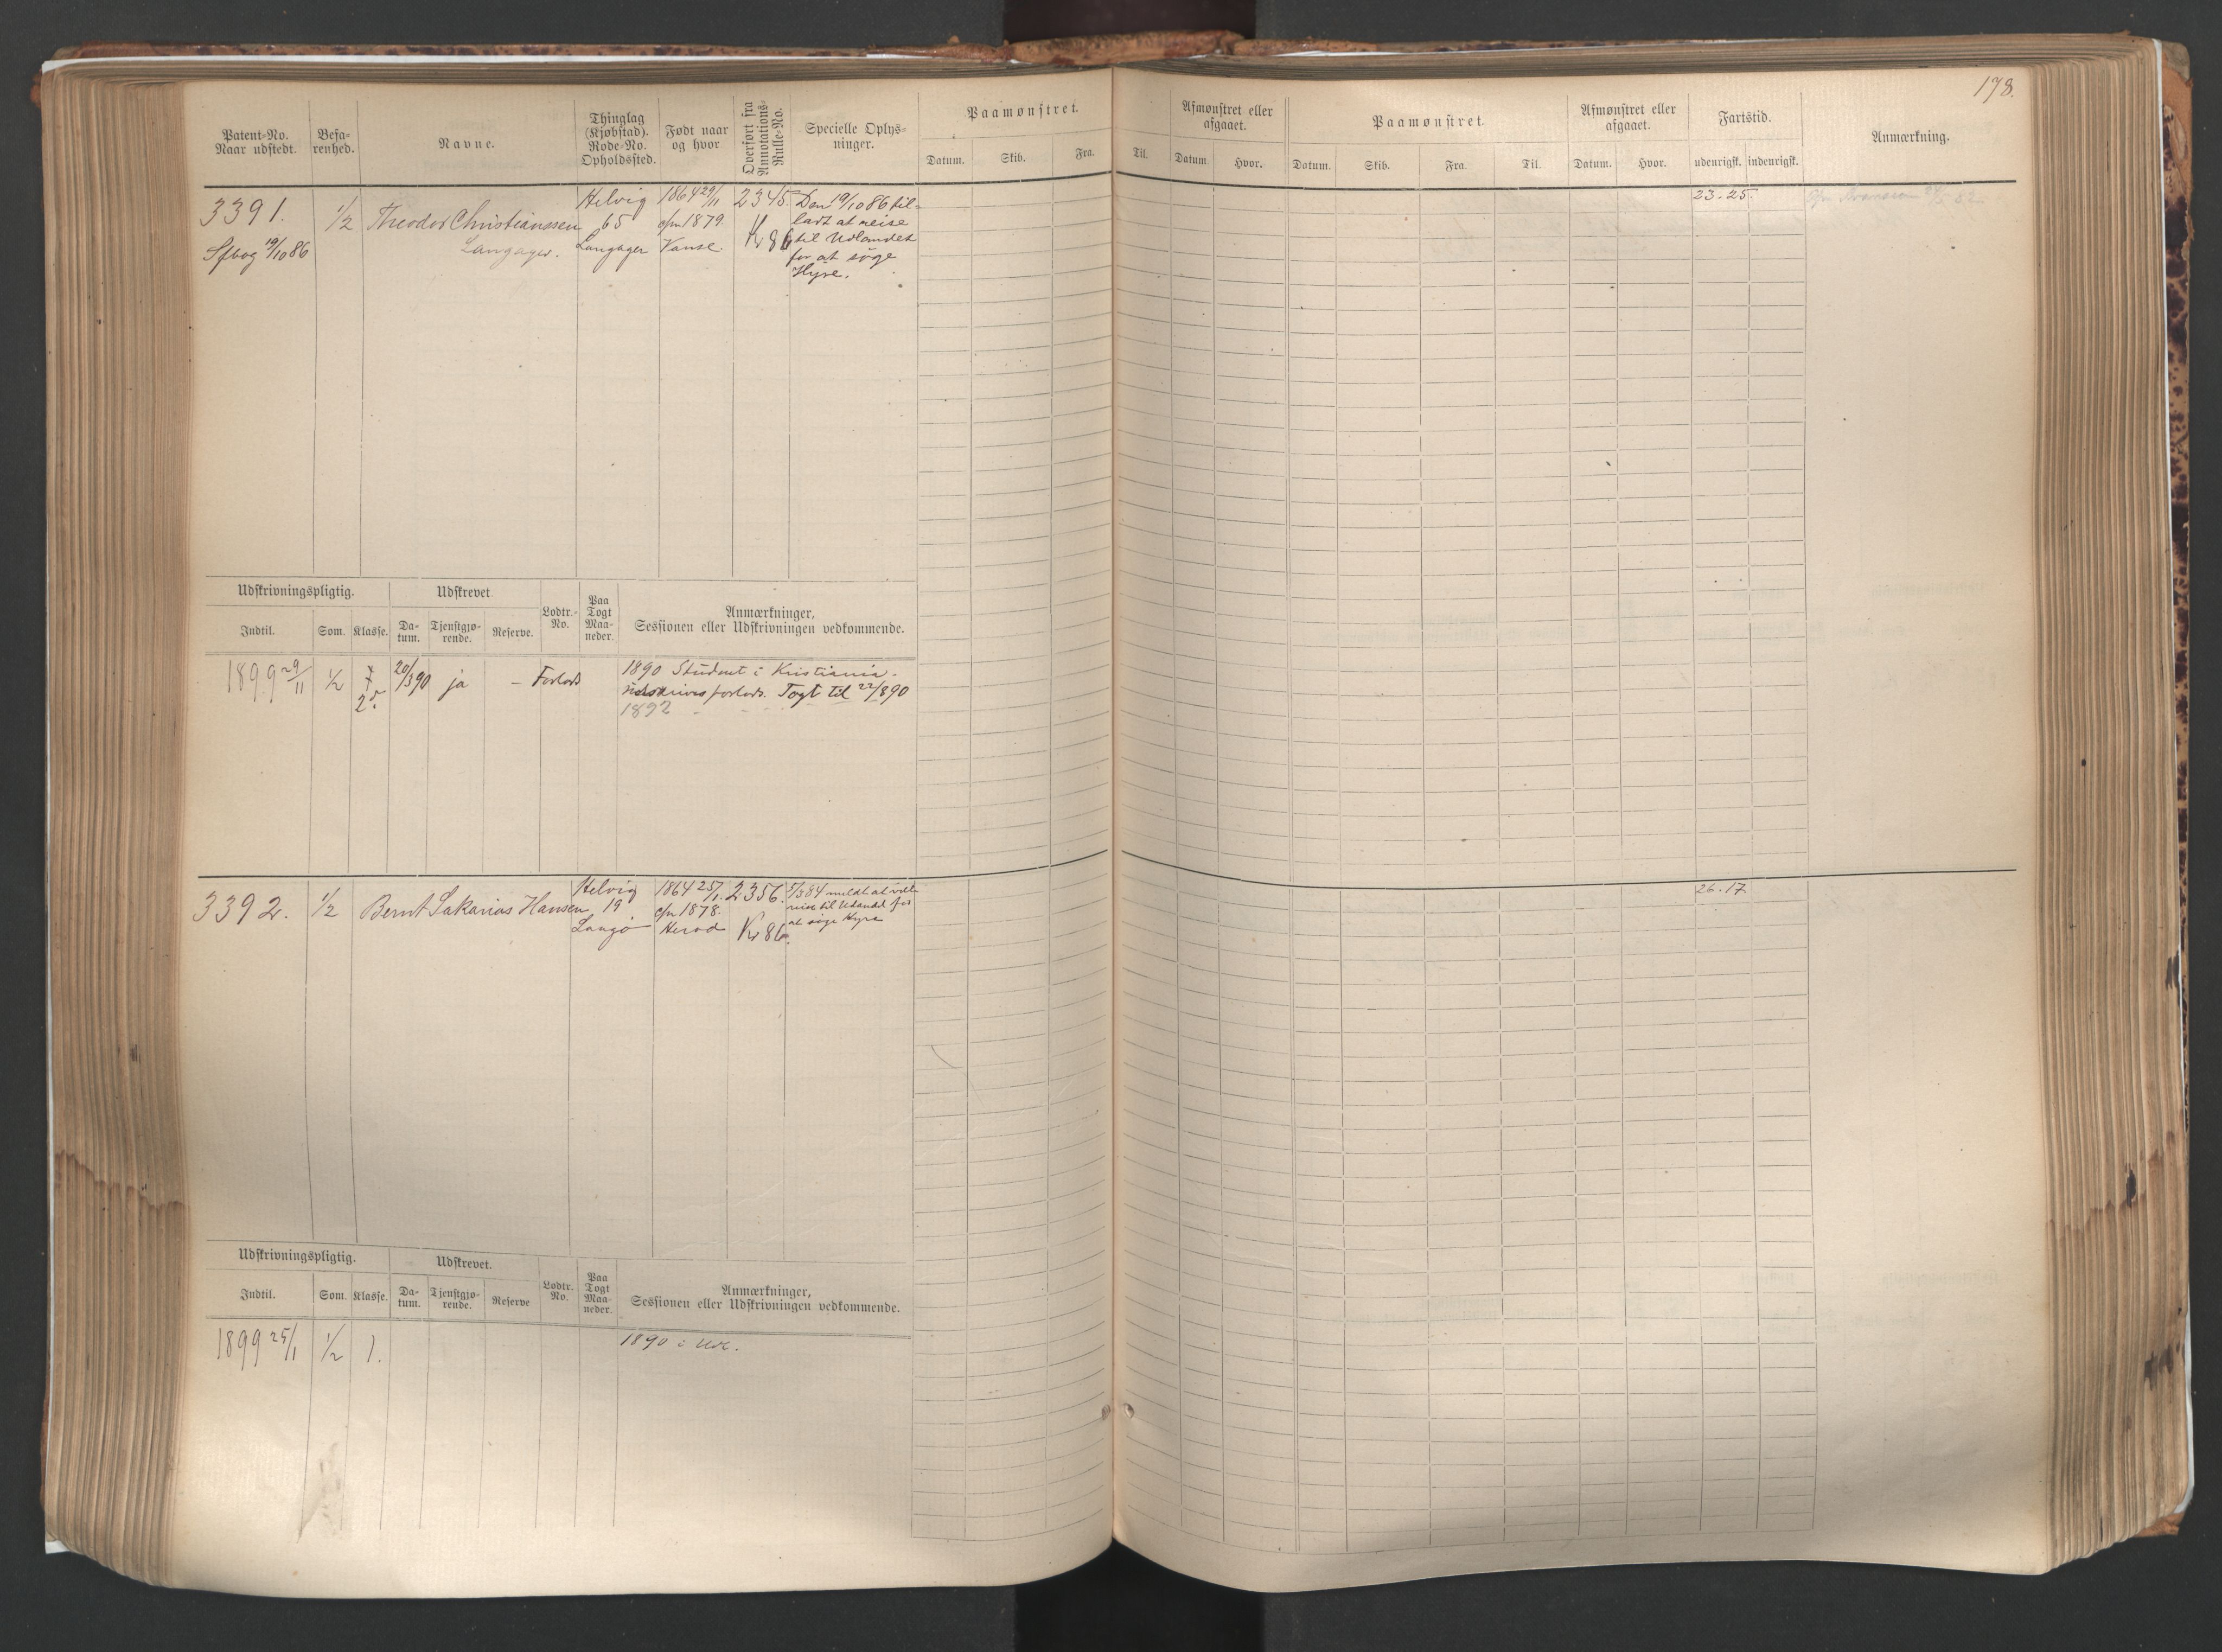 178.
Patent-No.
Naar udstedt.
Befa-
renhed.
Navne.
Thinglag
(Kjøbstad).
Rode-No.
Opholdssted.
Født naar
og hvor
Overført fra
Annotations-
Rulle-No.
Specielle Oplys-
ninger.
Paamønstret.
Datum.
Skib.
Fra.
Til.
Afmønstret eller
afgaaet.
Datum
Hvor.
Paamønstret.
Datum.
Skib.
Fra.
Til.
Afmønstret eller
afgaaet.
Datum.
Hvor.
Fartstid.
udenrigsk.
indenrigsk.
Anmærkning.
3391.
Sfbog 19/10 86
1/2
Theodor Christianssen
Langager.
Helvig
65
Langager
1864 29/11
c/m 1879.
Vanse.
2345.
Kr 86
Den 19/10 86 til-
ladt at reise
til Udlandet
for at söge
Hyre.
23.25.
Udskrivningspligtig.
Indtil.
Som.
Klasse.
Udskrevet
Da-
tum.
Tjenstgjø-
rende.
Reserve.
Lodtr.-
No.
Paa
Togt
Maa-
neder.
Anmærkninger,
Sessionen eller Udskrivningen vedkommende.
1899 29/11
1/2
2.
20/3 90
ja
–
Forlods
1890 Student i Kristiania.
forlods. Togt til 22/8 90
1892
3392.
1/2
Bernt Sakarias Hansen
Helvig
19
Langö
1864 25/1.
c/m 1878.
Herad
2356.
Kr 86.
5/3 84 meldt at ville
reise til Udlandet for
at söge Hyre
26.17
Udskrivningspligtig.
Indtil.
Som.
Klasse.
Udskrevet.
Da-
tum.
Tjenstgjø-
rende.
Reserve
Lodtr.
No.
Paa
Togt
Maa-
neder.
Anmærkninger,
Sessionen eller Udskrivningen vedkommende.
1899 25/1
1/2
1.
1890 i Udl.